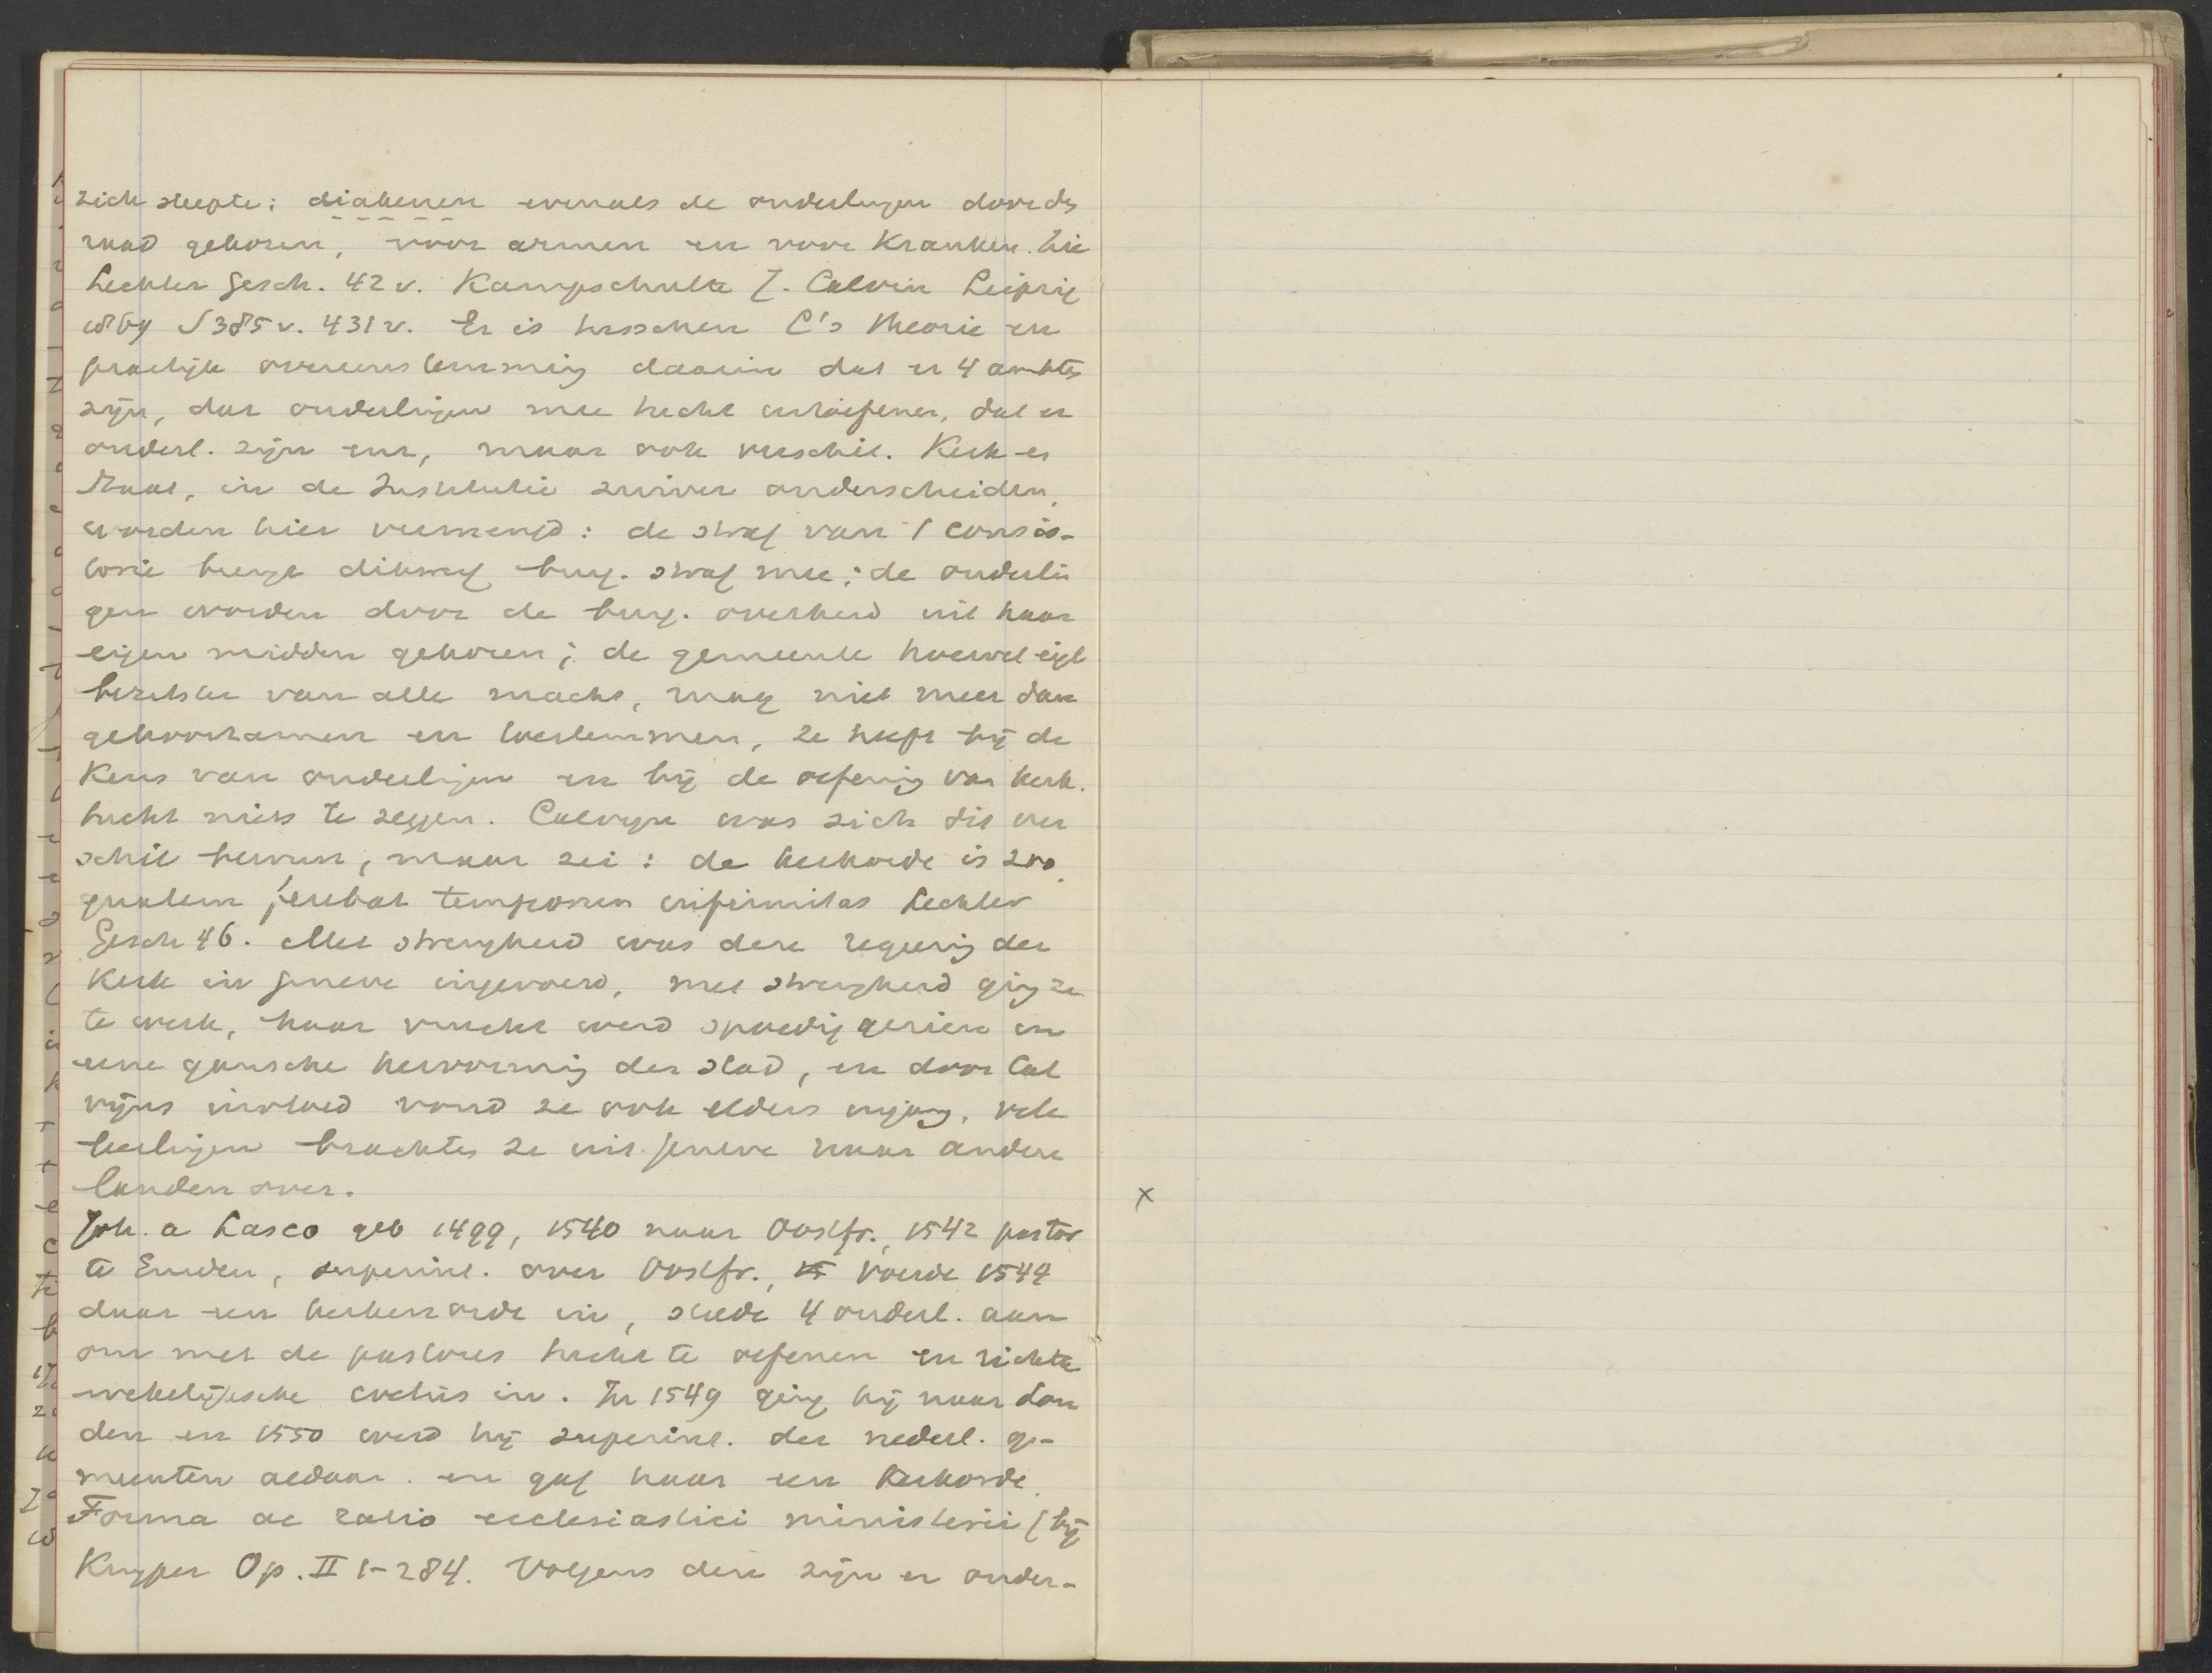 zich sleepte; diakenen evenals de ouderlingen door de
raad gekozen, voor armen en voor Kranken. Zie
Lechler Gesch. 42 v. Kampschulte J. Calvin Leipzig
1869 S 385 v. 431 v. Er is tusschen C's theorie en
practijk overeenstemming daarin dat er 4 ambten
zijn, dat ouderlingen mee tucht uitoefenen, dat er
ouderl. zijn enz, maar ook verschil. Kerk en
Staat, in de Institutie zuiver onderscheiden,
worden hier vermengd: de straf van 't consis-
torie brengt dikwijls burg. straf mee; de ouderlin
gen worden door de burg. overheid uit haar
eigen midden gekozen; de gemeente hoewel eigl
bezitster van alle macht, mag niet meer dan
gehoorzamen en toestemmen, ze heeft bij de
Keus van ouderlingen en bij de oefening van kerk.
tucht niets te zeggen. Calvyn was zich dit ver
schil bewust, maar zei: de kerkorde is zoo,
qualem ferebat temporum infirmitas Lechler
Gesch 46. Met strengheid was deze regeering der
Kerk in Geneve ingevoerd, met strengheid ging ze
te werk, haar vrucht werd spoedig gezien in
eene gansche hervorming der stad, en door Cal
vijns invloed vond ze ook elders ingang, vele
leerlingen brachten ze uit Geneve naar andere
landen over.
x
Joh. a Lasco geb 1499, 1540 naar Oostfr., 1542 pastor
te Emden, superint. over Oostfr., voerde 1544
daar een kerkenorde in, stelde 4 ouderl. aan
om met de pastores tucht te oefenen en richtte
wekelijksche coetus in. In 1549 ging hij naar Lon
den en 1550 werd hij superint. der nederl. ge-
meenten aldaar en gaf haar een Kerkorde
Forma ac ratio ecclesiastici ministerii (bij
Kuyper Op. II 1-284. Volgens deze zijn er onder-